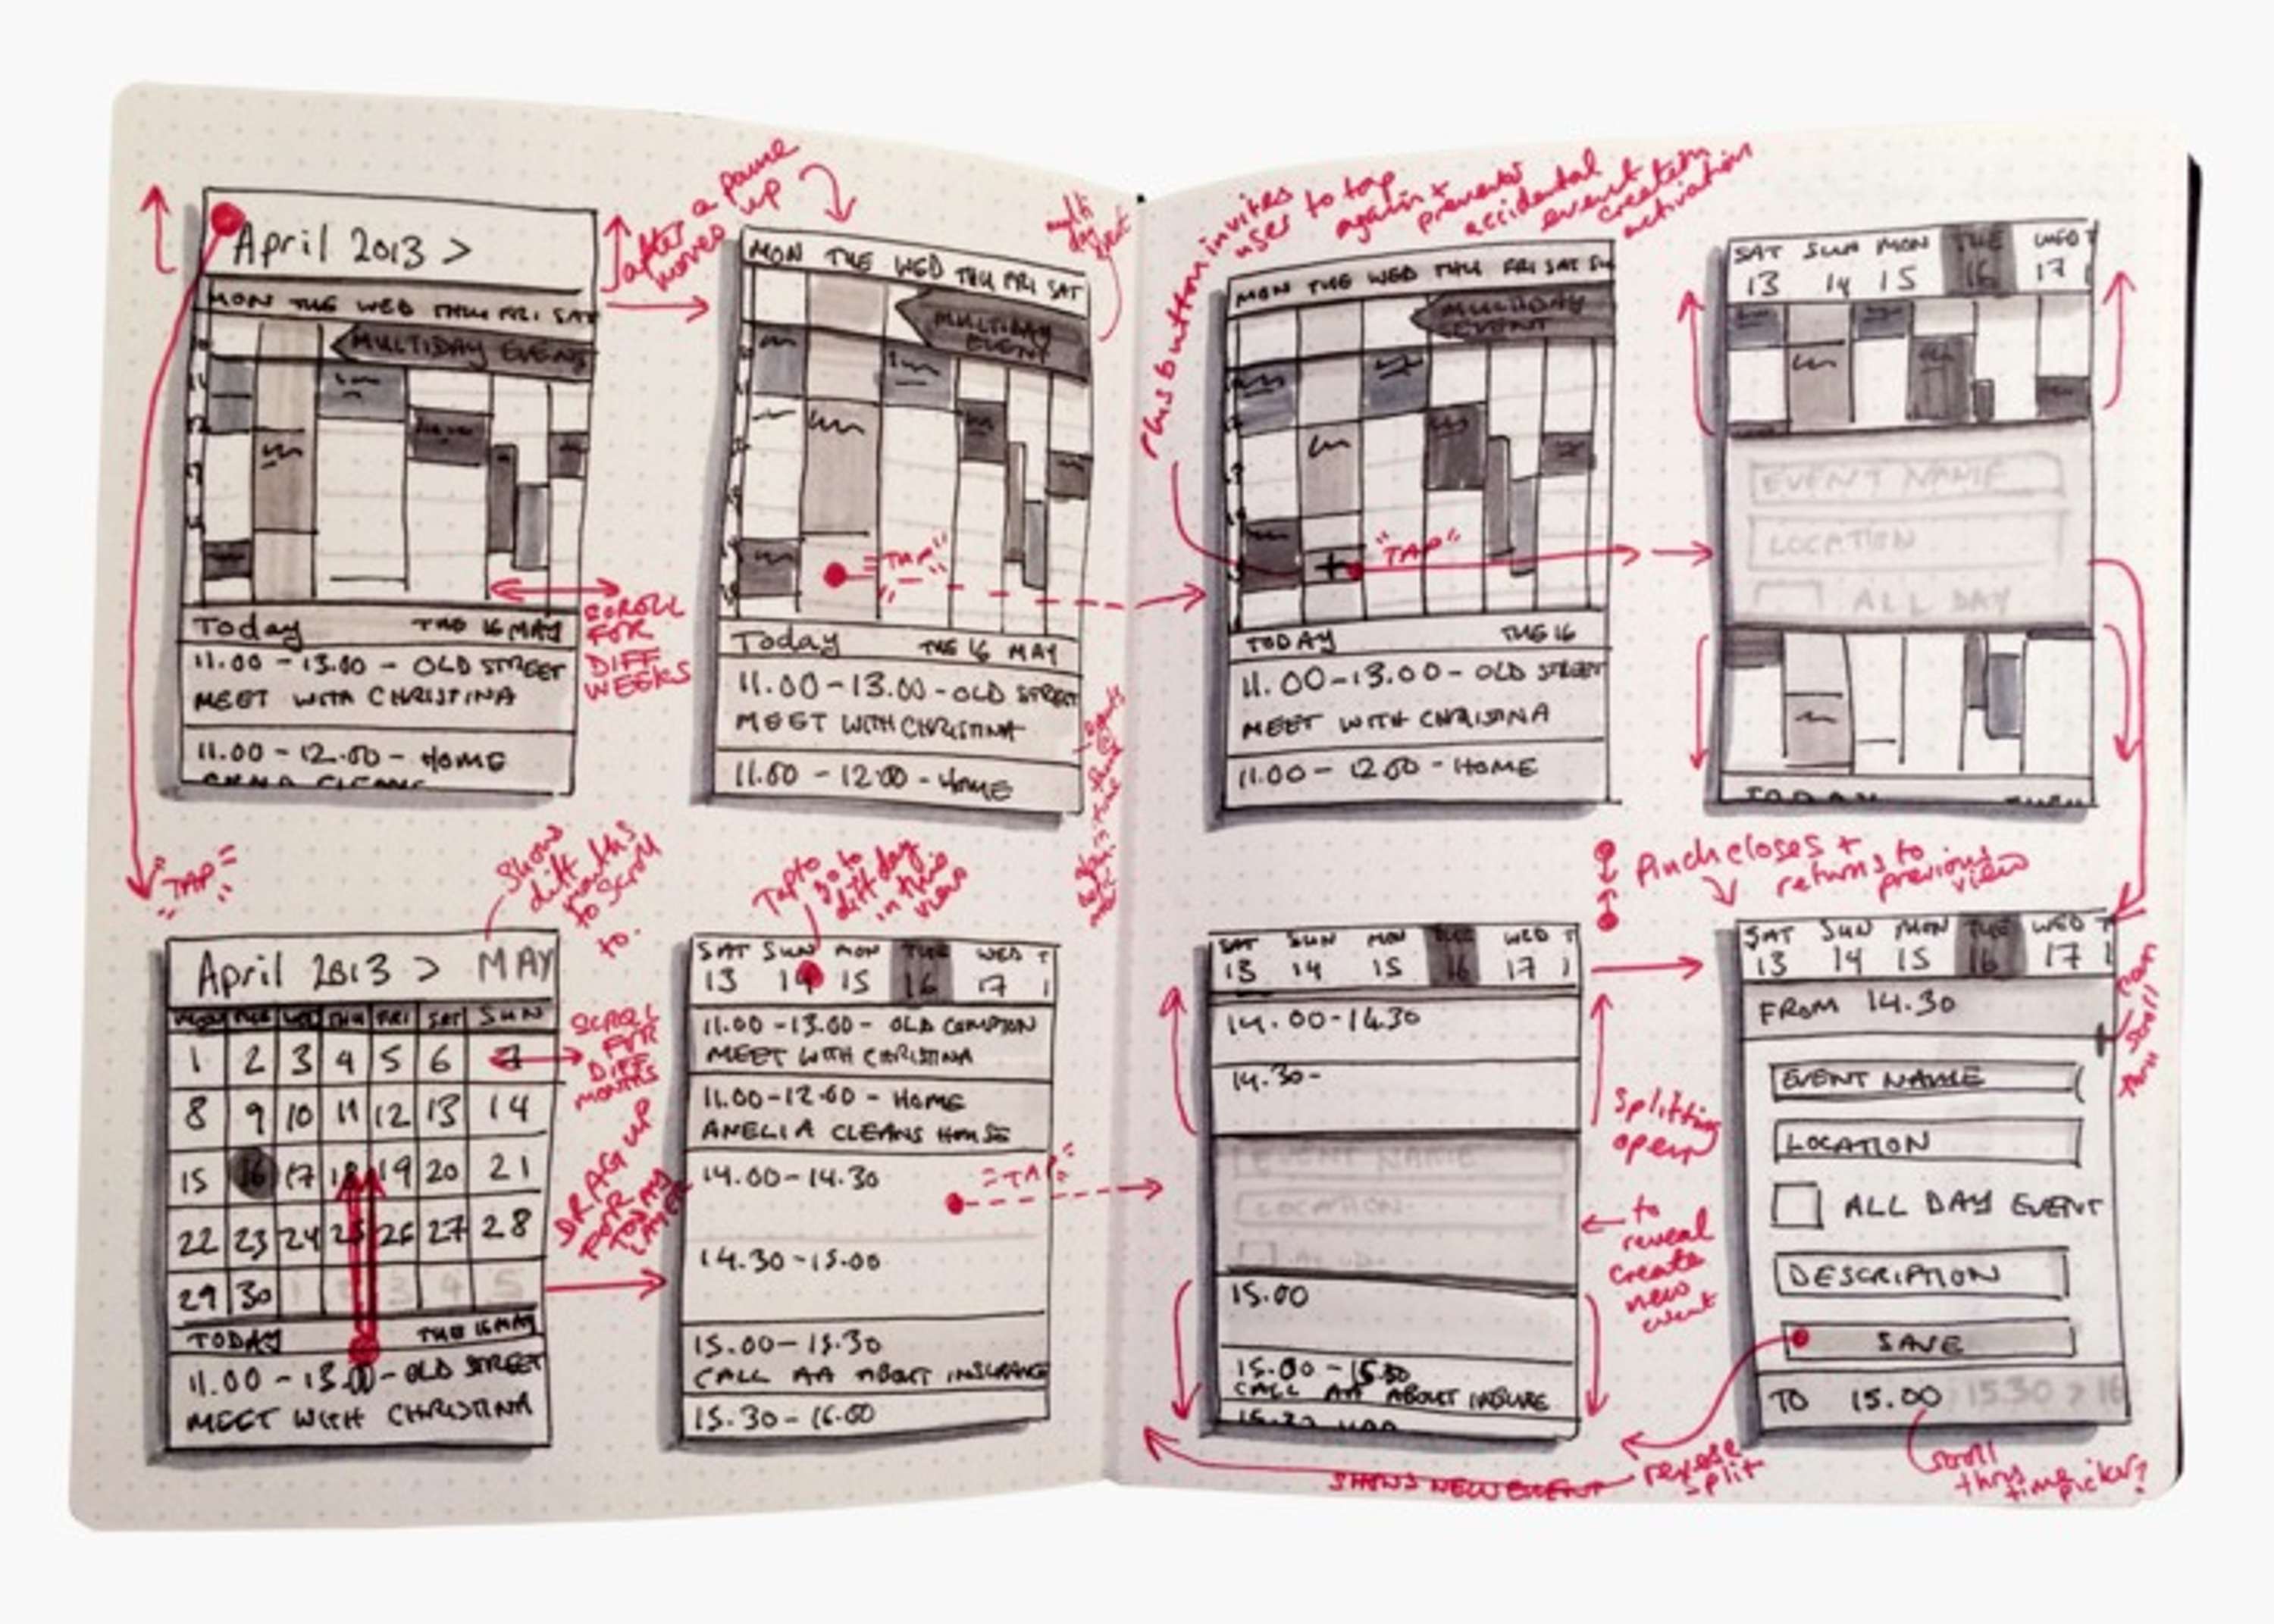 after a pause
moves up
April 2013 >
MON TUE WED THU FRI SAT
MULTIDAY EVENT
11
12
SCROLL
FOR
DIFF
WEEKS
Today TUE 16 MAY
11.00 - 13.00 - OLD STREET
MEET WITH CHRISTINA
11.00 - 12.00 - HOME
"TAP"
multi
day
event
MON TUE WED THU FRI SAT
MULTIDAY
EVENT
"TAP"
Today TUE 16 MAY
11.00 - 13.00 - OLD STREET
MEET WITH CHRISTINA
11.00 - 12.00 - HOME
This button invites
user to tap
again +
prevents
accidental
event
creation
activation
MON TUE WED THU FRI SAT SU
MULTIDAY
EVENT
+ "TAP"
TODAY TUE 16
11.00 - 13.00 - OLD STREET
MEET WITH CHRISTINA
11.00 - 12.00 - HOME
SAT SUN MON TUE WED T
13 14 15 16 17 1
EVENT NAME
LOCATION
ALL DAY
TODAY
Show
diff
months
to scroll
to.
April 2013 > MAY
MON TUE WED THU FRI SAT SUN
1 2 3 4 5 6 7
8 9 10 11 12 13 14
15 16 17 18 19 20 21
22 23 24 25 26 27 28
29 30 1 2 3 4 5
TODAY TUE 16 MAY
11.00 - 13.00 - OLD STREET
MEET WITH CHRISTINA
SCROLL
FOR
DIFF
MONTHS
DRAG UP
FOR
TODAY
LAYER
Tap to
go to
diff day
in this
view
SAT SUN MON TUE WED T
13 14 15 16 17 1
11.00 - 13.00 - OLD COMPTON
MEET WITH CHRISTINA
11.00 - 12.00 - HOME
AMELIA CLEANS HOUSE
14.00 - 14.30
"TAP"
14.30 - 15.00
15.00 - 15.30
CALL AA ABOUT INSURANCE
15.30 - 16.00
SAT SUN MON TUE WED T
13 14 15 16 17 1
14.00 - 14.30
14.30 -
EVENT NAME
LOCATION
15.00
15.00 - 15.30
CALL AA ABOUT INSURE
Splitting
open
to
reveal
create
new
event
Pinch closes +
returns to
previous
view
SAT SUN MON TUE WED T
13 14 15 16 17 1
FROM 14.30
EVENT NAME
LOCATION
ALL DAY EVENT
DESCRIPTION
SAVE
TO 15.00 15.30 > 16
SHOWS NEW EVENT
split
scroll
thru
time picker?